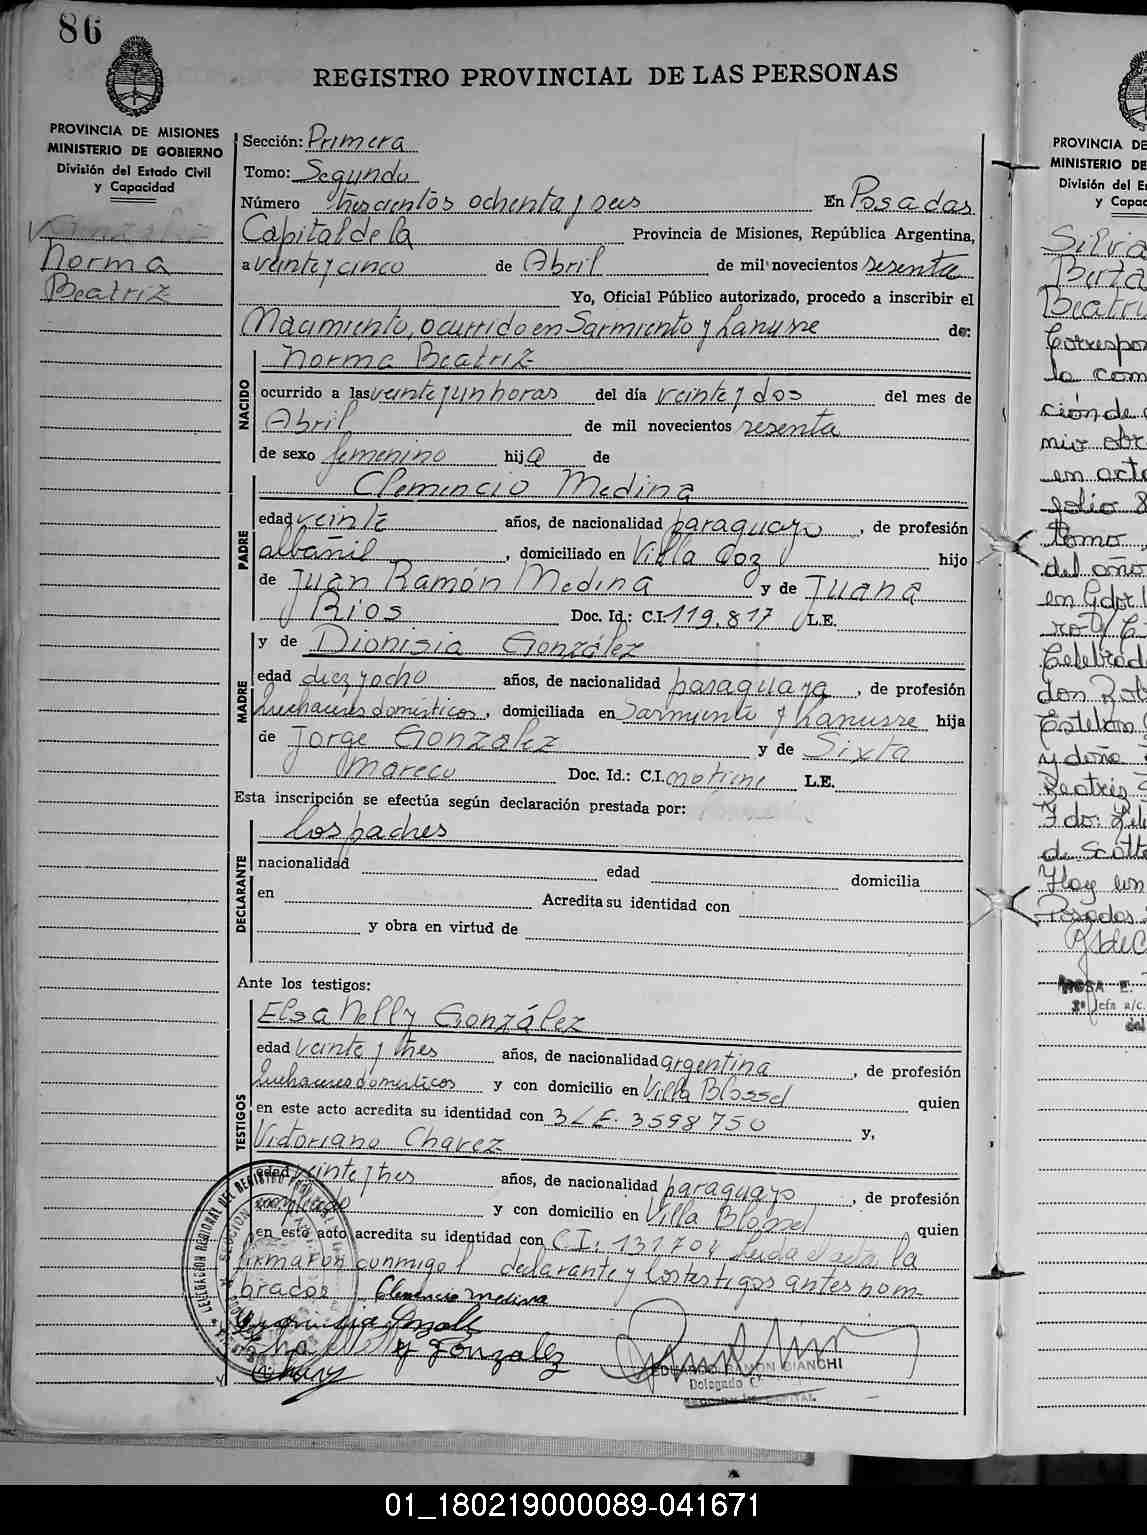 86
REGISTRO PROVINCIAL DE LAS PERSONAS
PROVINCIA DE MISIONES
MINISTERIO DE GOBIERNO
División del Estado Civil
y Capacidad
González
Norma
Beatriz
Sección: Primera
Tomo: Segundo
Número trescientos ochenta y seis En Posadas
Capital de la Provincia de Misiones, República Argentina,
a veinte y cinco de Abril de mil novecientos sesenta
Yo, Oficial Público autorizado, procedo a inscribir el
Nacimiento, ocurrido en Sarmiento y Lanusse de:
NACIDO
Norma Beatriz
ocurrido a las veinte y un horas del día veinte y dos del mes de
Abril de mil novecientos sesenta
de sexo femenino hija de
PADRE
Clemencio Medina
edad veinte años, de nacionalidad paraguayo, de profesión
albañil, domiciliado en Villa Coz hijo
de Juan Ramón Medina y de Juana
Rios Doc. Id.: C.I. 119.817 L.E.
MADRE
y de Dionisia González
edad diez y ocho años, de nacionalidad paraguaya, de profesión
quehaceres domésticos, domiciliada en Sarmiento y Lanusse hija
de Jorge González y de Sixta
Mareco Doc. Id.: C.I. no tiene L.E.
Esta inscripción se efectúa según declaración prestada por:
DECLARANTE
los padres
nacionalidad edad domicilia
en Acredita su identidad con
y obra en virtud de
Ante los testigos:
TESTIGOS
Elsa Nelly González
edad veinte y tres años, de nacionalidad argentina, de profesión
quehaceres domésticos y con domicilio en Villa Blossel quien
en este acto acredita su identidad con 3 L.E. 3598750 y,
Victoriano Chavez
edad veinte y tres años, de nacionalidad paraguayo, de profesión
empleado y con domicilio en Villa Blossel quien
en este acto acredita su identidad con C.I. 131704 Leida el acta la
firmaron conmigo l declarante y los testigos antes nom-
brados Clemencio Medina
Gonzalez
Chavez
EDUARDO RAMON BIANCHI
Delegado
DELEGACION REGIONAL DEL REGISTRO
SECCION
PROVINCIA DE
MINISTERIO DE
División del E
y Capac
Silvia
Berta
Beatri
Correspon
la com
ción de
nio obr
en acta
folio 8
Tomo
del año
en
Celebrad
don Rob
Esteban
y doña
Beatriz
Fdo:
de Scotto
Hoy un
Posadas
ROSA E.
Jefa a/c.
del
01_180219000089-041671